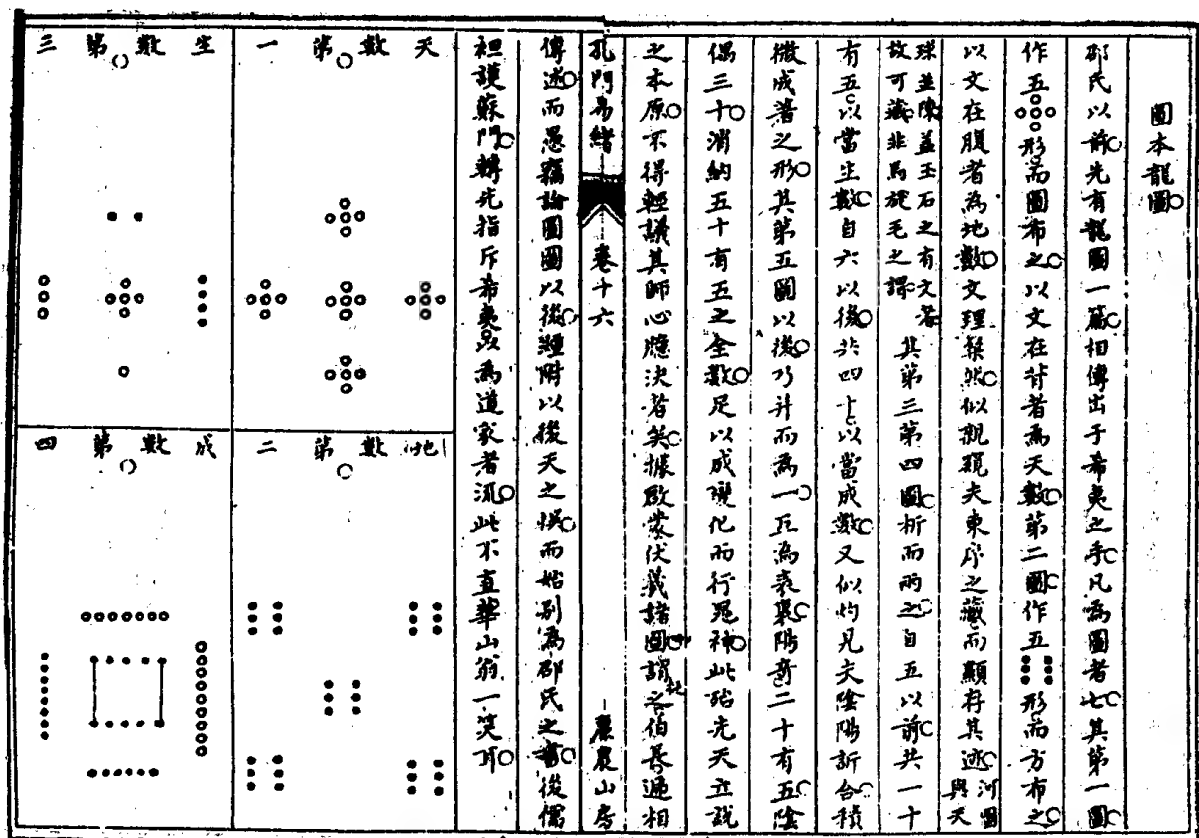 圖本龍圖
邵氏以前先有龍圖一篇相傳出于希夷之手凡為圖者七其第一圖
作五形而圖布之以文在背者為天數第二圖作五形而方布之
以文在腹者為地數文理粲然似親覩夫東序之藏而顯存其迹河圖與天
球並陳蓋玉石之有文者故可藏非馬旋毛之謂其第三第四圖析而兩之自五以前共一十
有五以當生數自六以後共四十以當成數又似灼見夫陰陽訢合積
微成著之形其第五圖以後乃并而為一互為表裏陽奇二十有五陰
偶三十消納五十有五之全數足以成變化而行鬼神此殆先天立說
之本原不得輕議其師心臆決者矣據啟蒙伏羲諸圖謂之伯長遞相
孔門易緒
卷十六
農山房
傳述而愚竊論圖圖以後經附以後天之悞而始別為邵氏之書後儒
袒護蘇門轉先指斥希夷以為道家者流此不直華山翁一笑耳
天數第一
地數第二
生數第三
成數第四